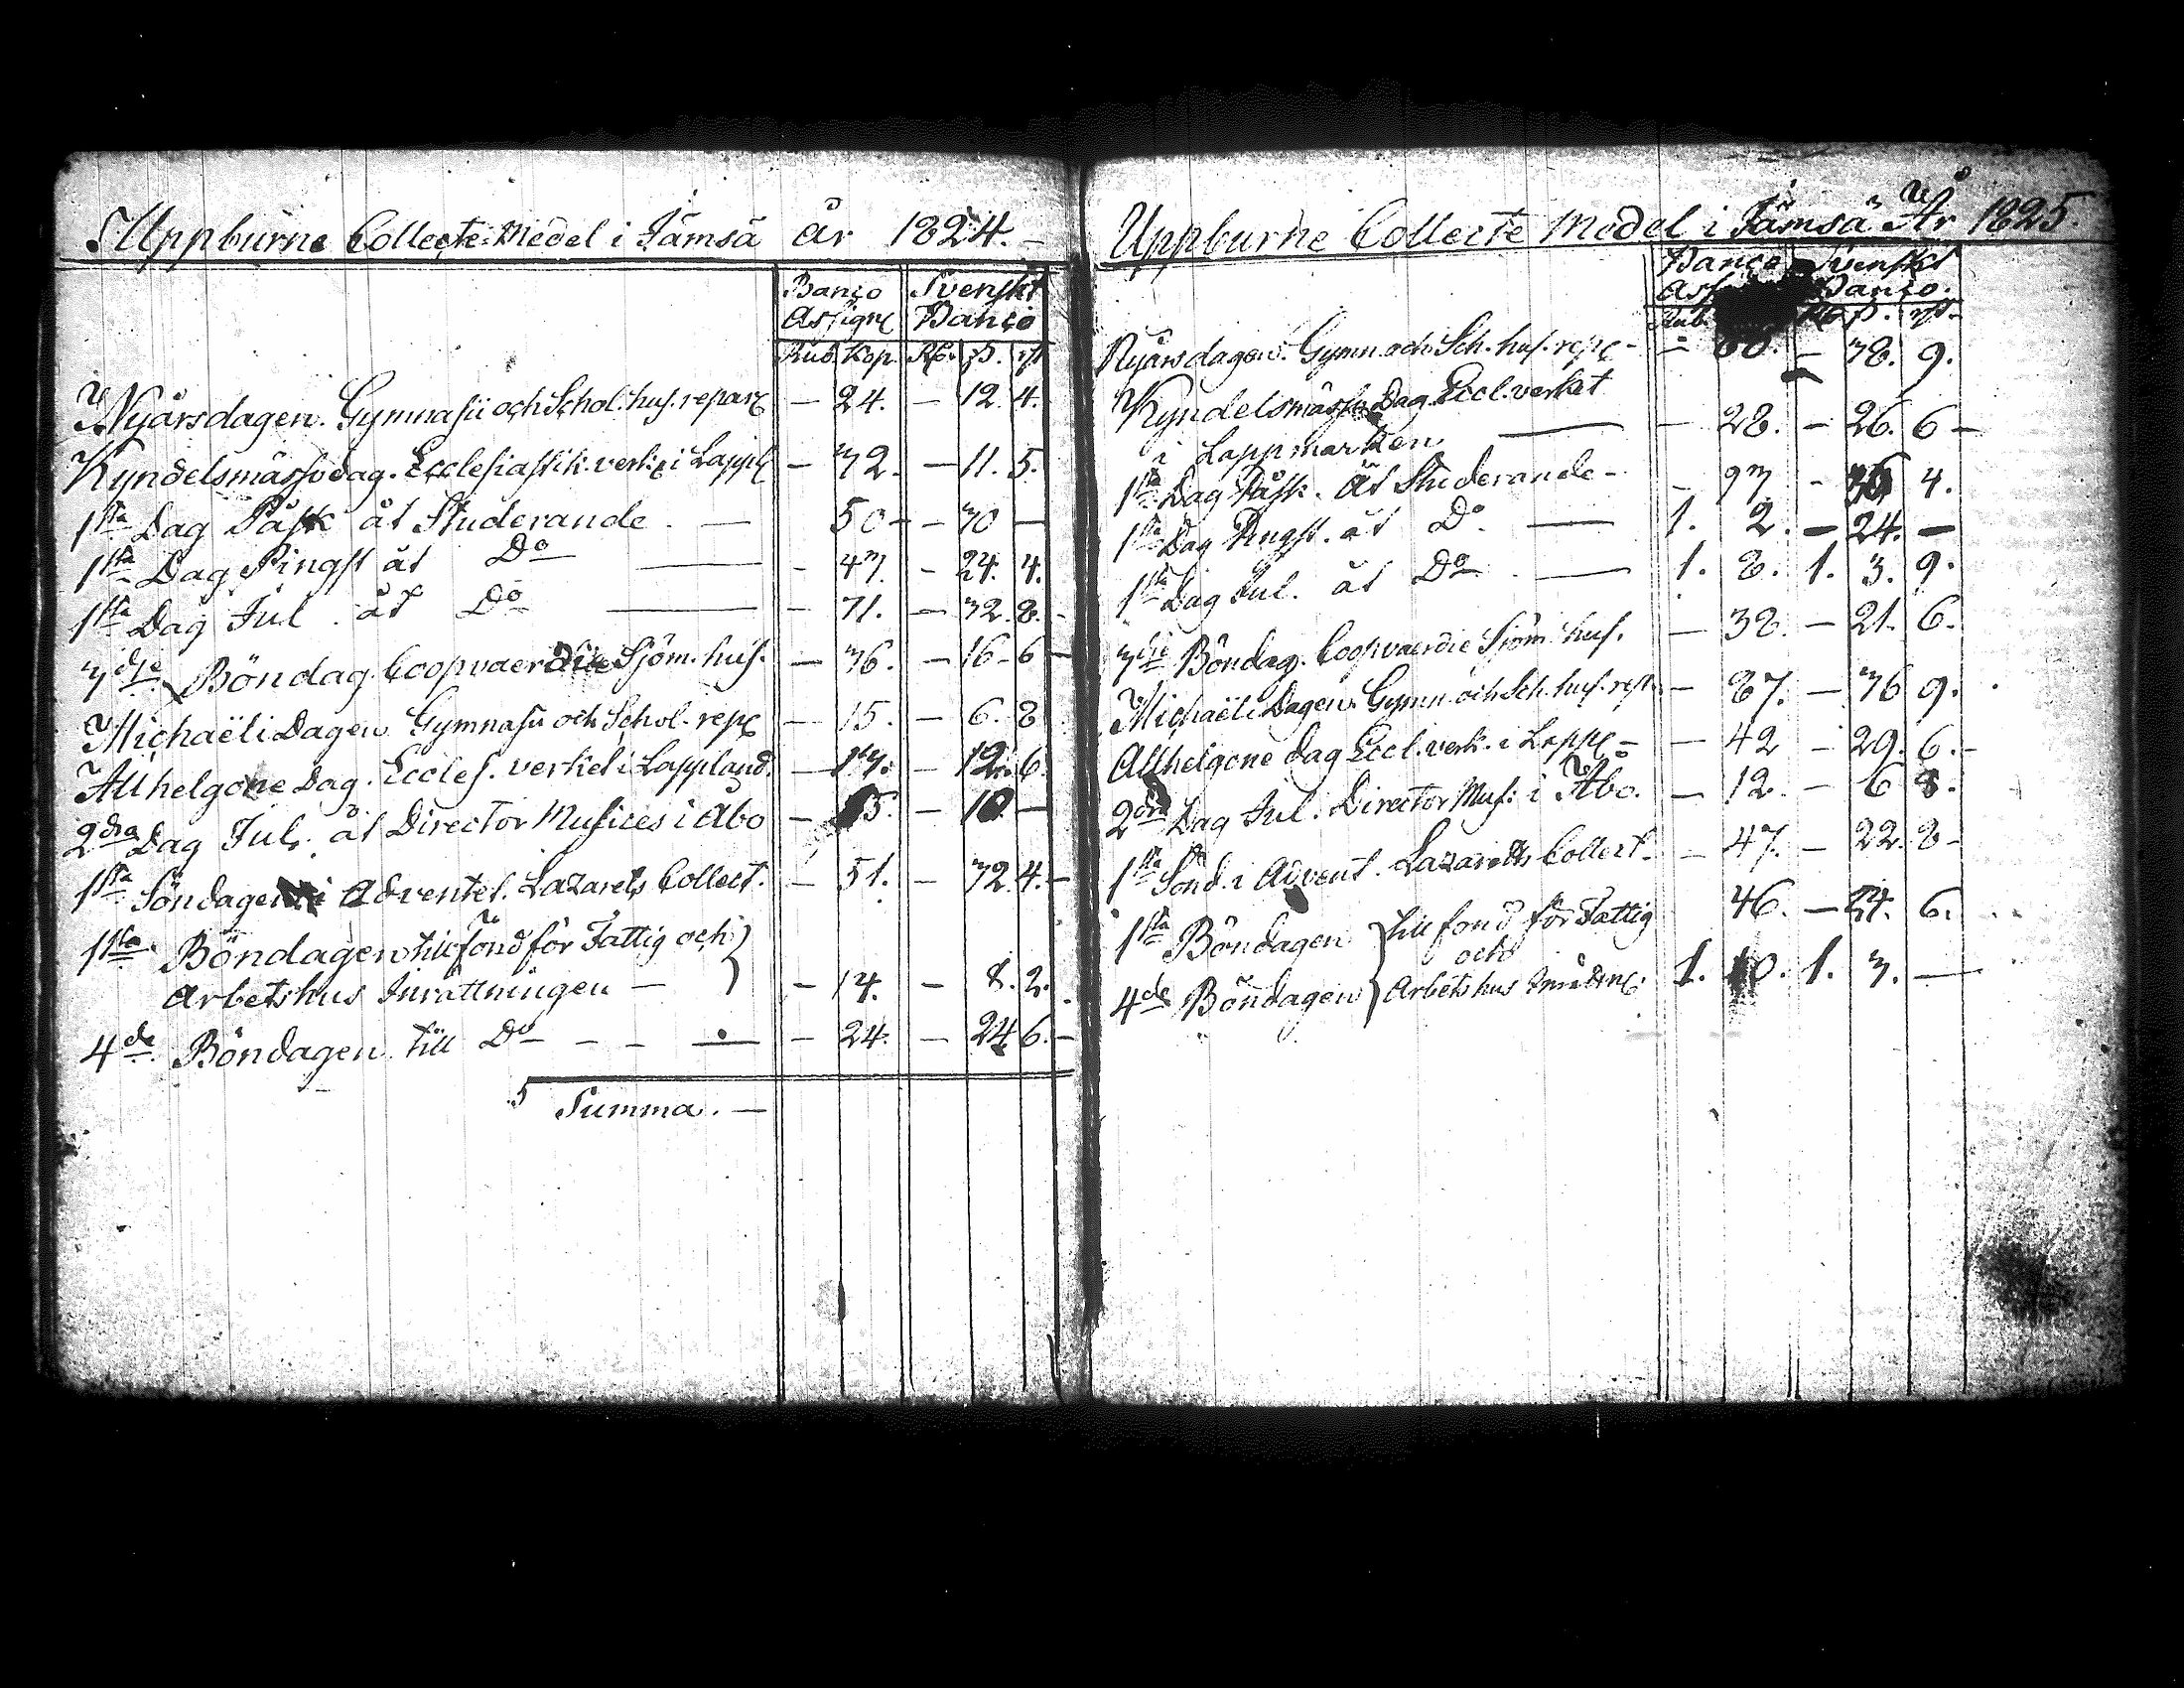 Uppburne Collecte Medel i Jämsä år 1824. –
Banco Svenskt
Assign Banco
Rub. Kop. Rd. ß. rst
Nyårsdagen. Gymnasii och Schol. hus. repar – 24. – 12. 4.
Kyndelsmässodag. Ecclesiastik. verk. i Lappl – 32. – 11. 5.
1sta Dag Påsk åt Studerande. – 50 – – 30 –
1sta Dag Pingst åt Do – 47. – 24. 4.
1sta Dag Jul. åt Do – 71. – 32. 8.
3dje Böndag. Coopvaerdie Sjöm. hus. – 36. – 16 – 6 –
Michaëli Dagen. Gymnasii och Schol. rep – 15. – 6. 8
Allhelgone Dag. Eccles. verket i Lappland. – 17. – 12. 6.
2dra Dag Jul. åt Director Musices i Åbo – 15. – 10. –
1sta Söndagen i Adventet. Lazarets Collect. – 51. – 32. 4. –
1sta Böndagen till fond för Fattig och
Arbetshus Inrättningen – – 14. – 8. 2.
4de Böndagen till Do – – – – 24. – 24 6. –
Summa. –
Uppburne Collecte Medel i Jämsä År 1825.
Banco Svenskt
Banco.
Rub. ß. rst.
Nyårsdagen. Gymn. och Sch. hus. rep – – 60. – 38. 9.
Kyndelsmässo Dag. Eccl. verket
i Lappmarken – 28. – 26. 6 –
1sta Dag Påsk. åt Studerande – – 93 – 4.
1sta Dag Pingst. åt Do. – 1. 2. – 24. –
1sta Dag Jul. åt Do – 1. 8. 1. 3. 9.
3dje Böndag. Coopvaerdie Sjöm. hus. – 38. – 21. 6.
Michaëli Dagen. Gymn. och Sch. hus. rep. – 87. – 36 9.
Allhelgone dag Eccl. verk. i Lapp – – 42 – 29. 6. –
2dra Dag Jul. Director Mus. i Åbo. – 12. – 6 8.
1sta Sönd. i Advent. Lazaretts Collect. – 47. – 22. 8 –
1sta Böndagen till fond för Fattig 46. – 24. 6.
och
4de Böndagen Arbetshus Inrättn. 1. 10. 1. 3. –